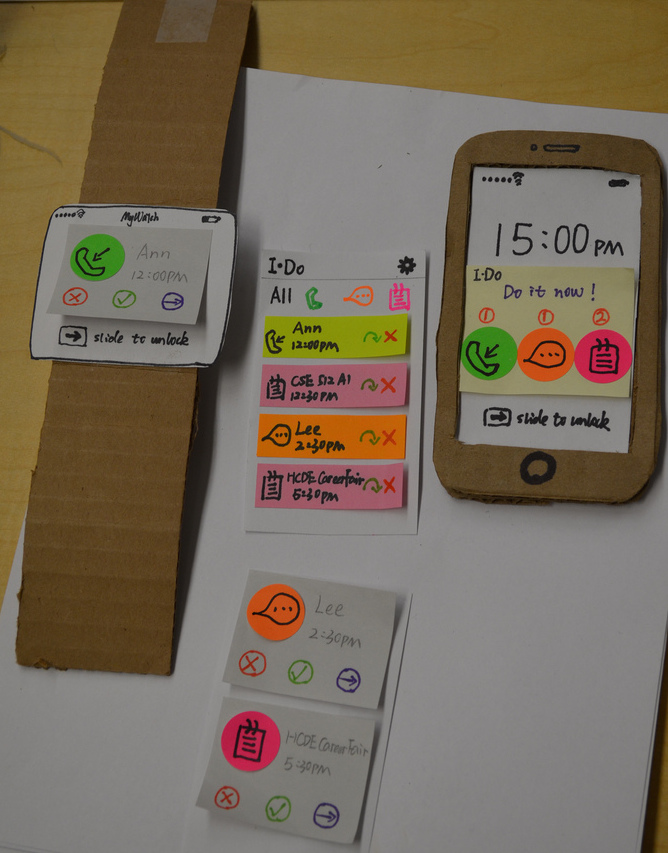 MyWatch
Ann
12:00PM
slide to unlock
I·Do
All
Ann
12:00PM
CSE 512 A1
12:30PM
Lee
2:30PM
HCDE CareerFair
5:30PM
15:00PM
I·Do
Do it now!
1 1 2
slide to unlock
Lee
2:30PM
HCDE CareerFair
5:30PM